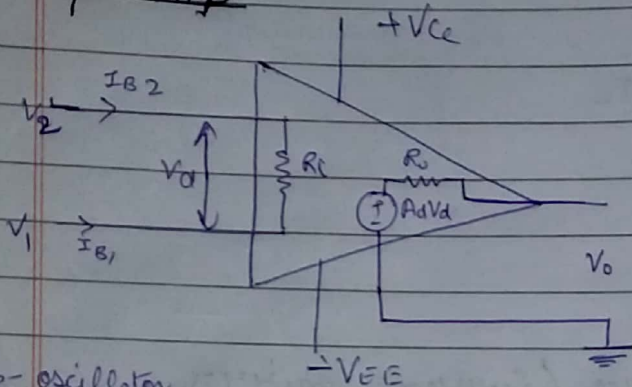 +VCC
IB2
V2
Vd
Ri
Ro
AdVd
V1
IB1
Vo
-VEE
- oscillator